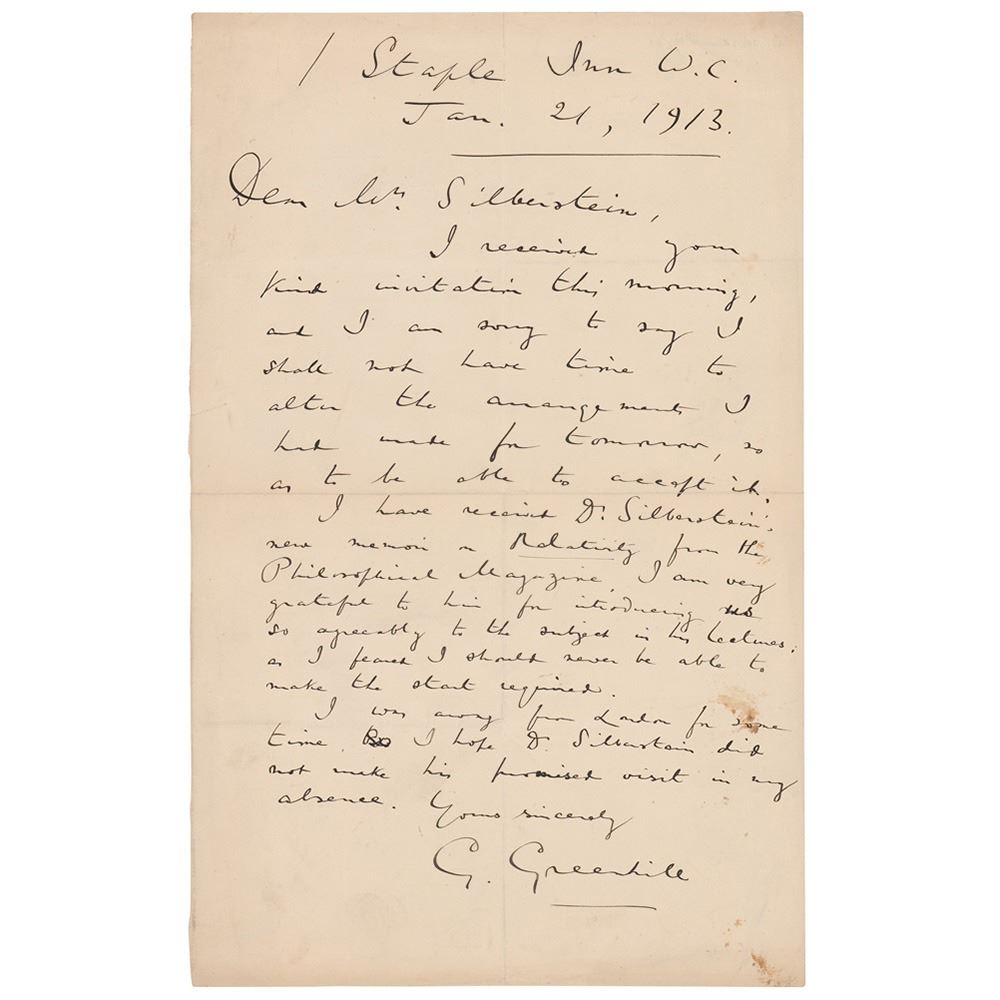 1 Staple Inn W.C.
Jan. 21, 1913.
Dear Mrs. Silberstein,
I received your
kind invitation this morning,
and I am sorry to say I
shall not have time to
alter the arrangements I
had made for tomorrow, so
as to be able to accept it.
I have received Dr. Silberstein's
new memoir on Relativity from the
Philosophical Magazine. I am very
grateful to him for introducing us
so agreeably to the subject in his lectures;
as I feared I should never be able to
make the start required.
I was away from London for some
time. I hope Dr. Silberstein did
not make his promised visit in my
absence. Yours sincerely
G. Greenhill